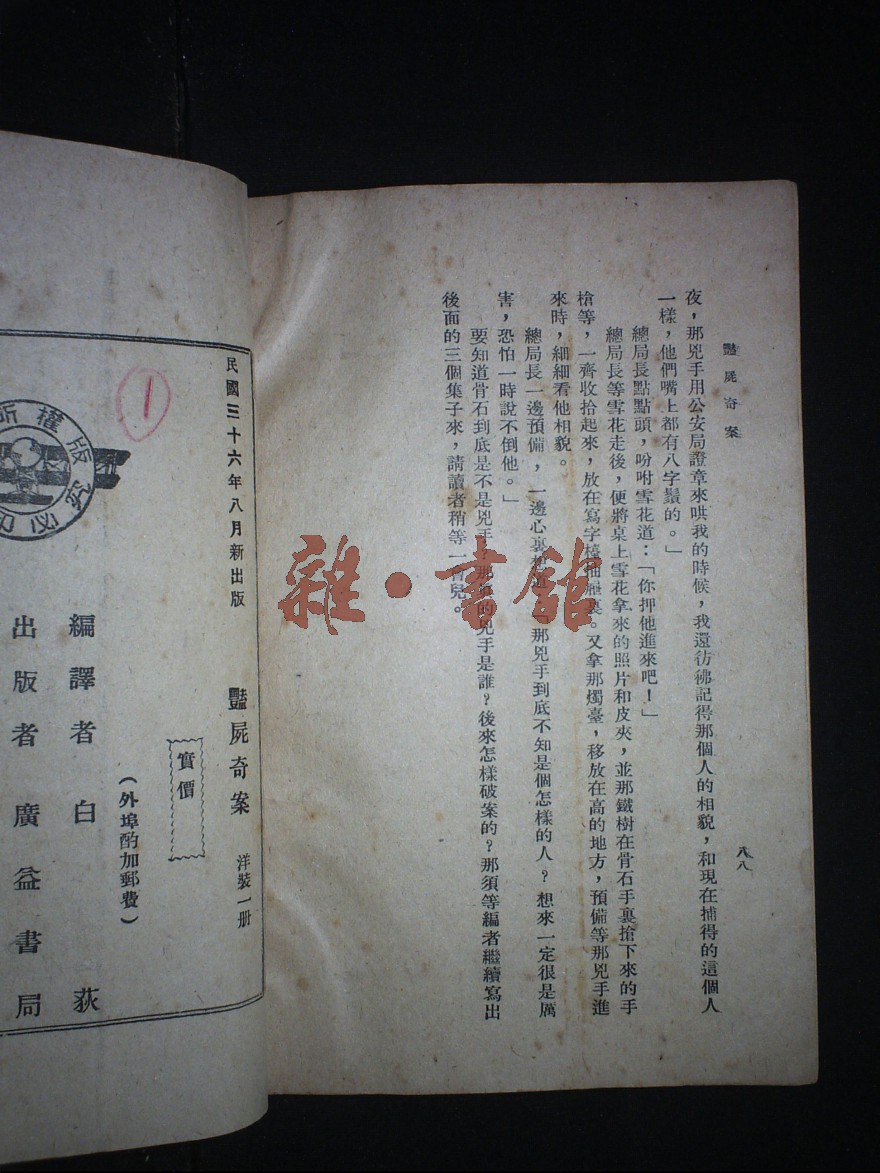 豔屍奇案
八八
夜，那兇手用公安局證章來哄我的時候，我還彷彿記得那個人的相貌，和現在捕得的這個人
一樣，他們嘴上都有八字鬚的。」
總局長點點頭，吩咐雪花道：「你押他進來吧！」
總局長等雪花走後，便將桌上雪花拿來的照片和皮夾，並那鐵樹在骨石手裏搶下來的手
槍等，一齊收拾起來，放在寫字檯抽屜裏。又拿那燭臺，移放在高的地方，預備等那兇手進
來時，細細看他相貌。
總局長一邊預備，一邊心裏想道：「那兇手到底不知是個怎樣的人？想來一定很是厲
害，恐怕一時說不倒他。」
要知道骨石到底是不是兇手？那真的兇手是誰？後來怎樣破案的？那須等編者繼續寫出
後面的三個集子來，請讀者稍等一會兒。
民國三十六年八月新出版
豔屍奇案 洋裝一册
實價
（外埠酌加郵費）
編譯者 白荻
出版者 廣益書局
所權版
究必印
①
雜·書館